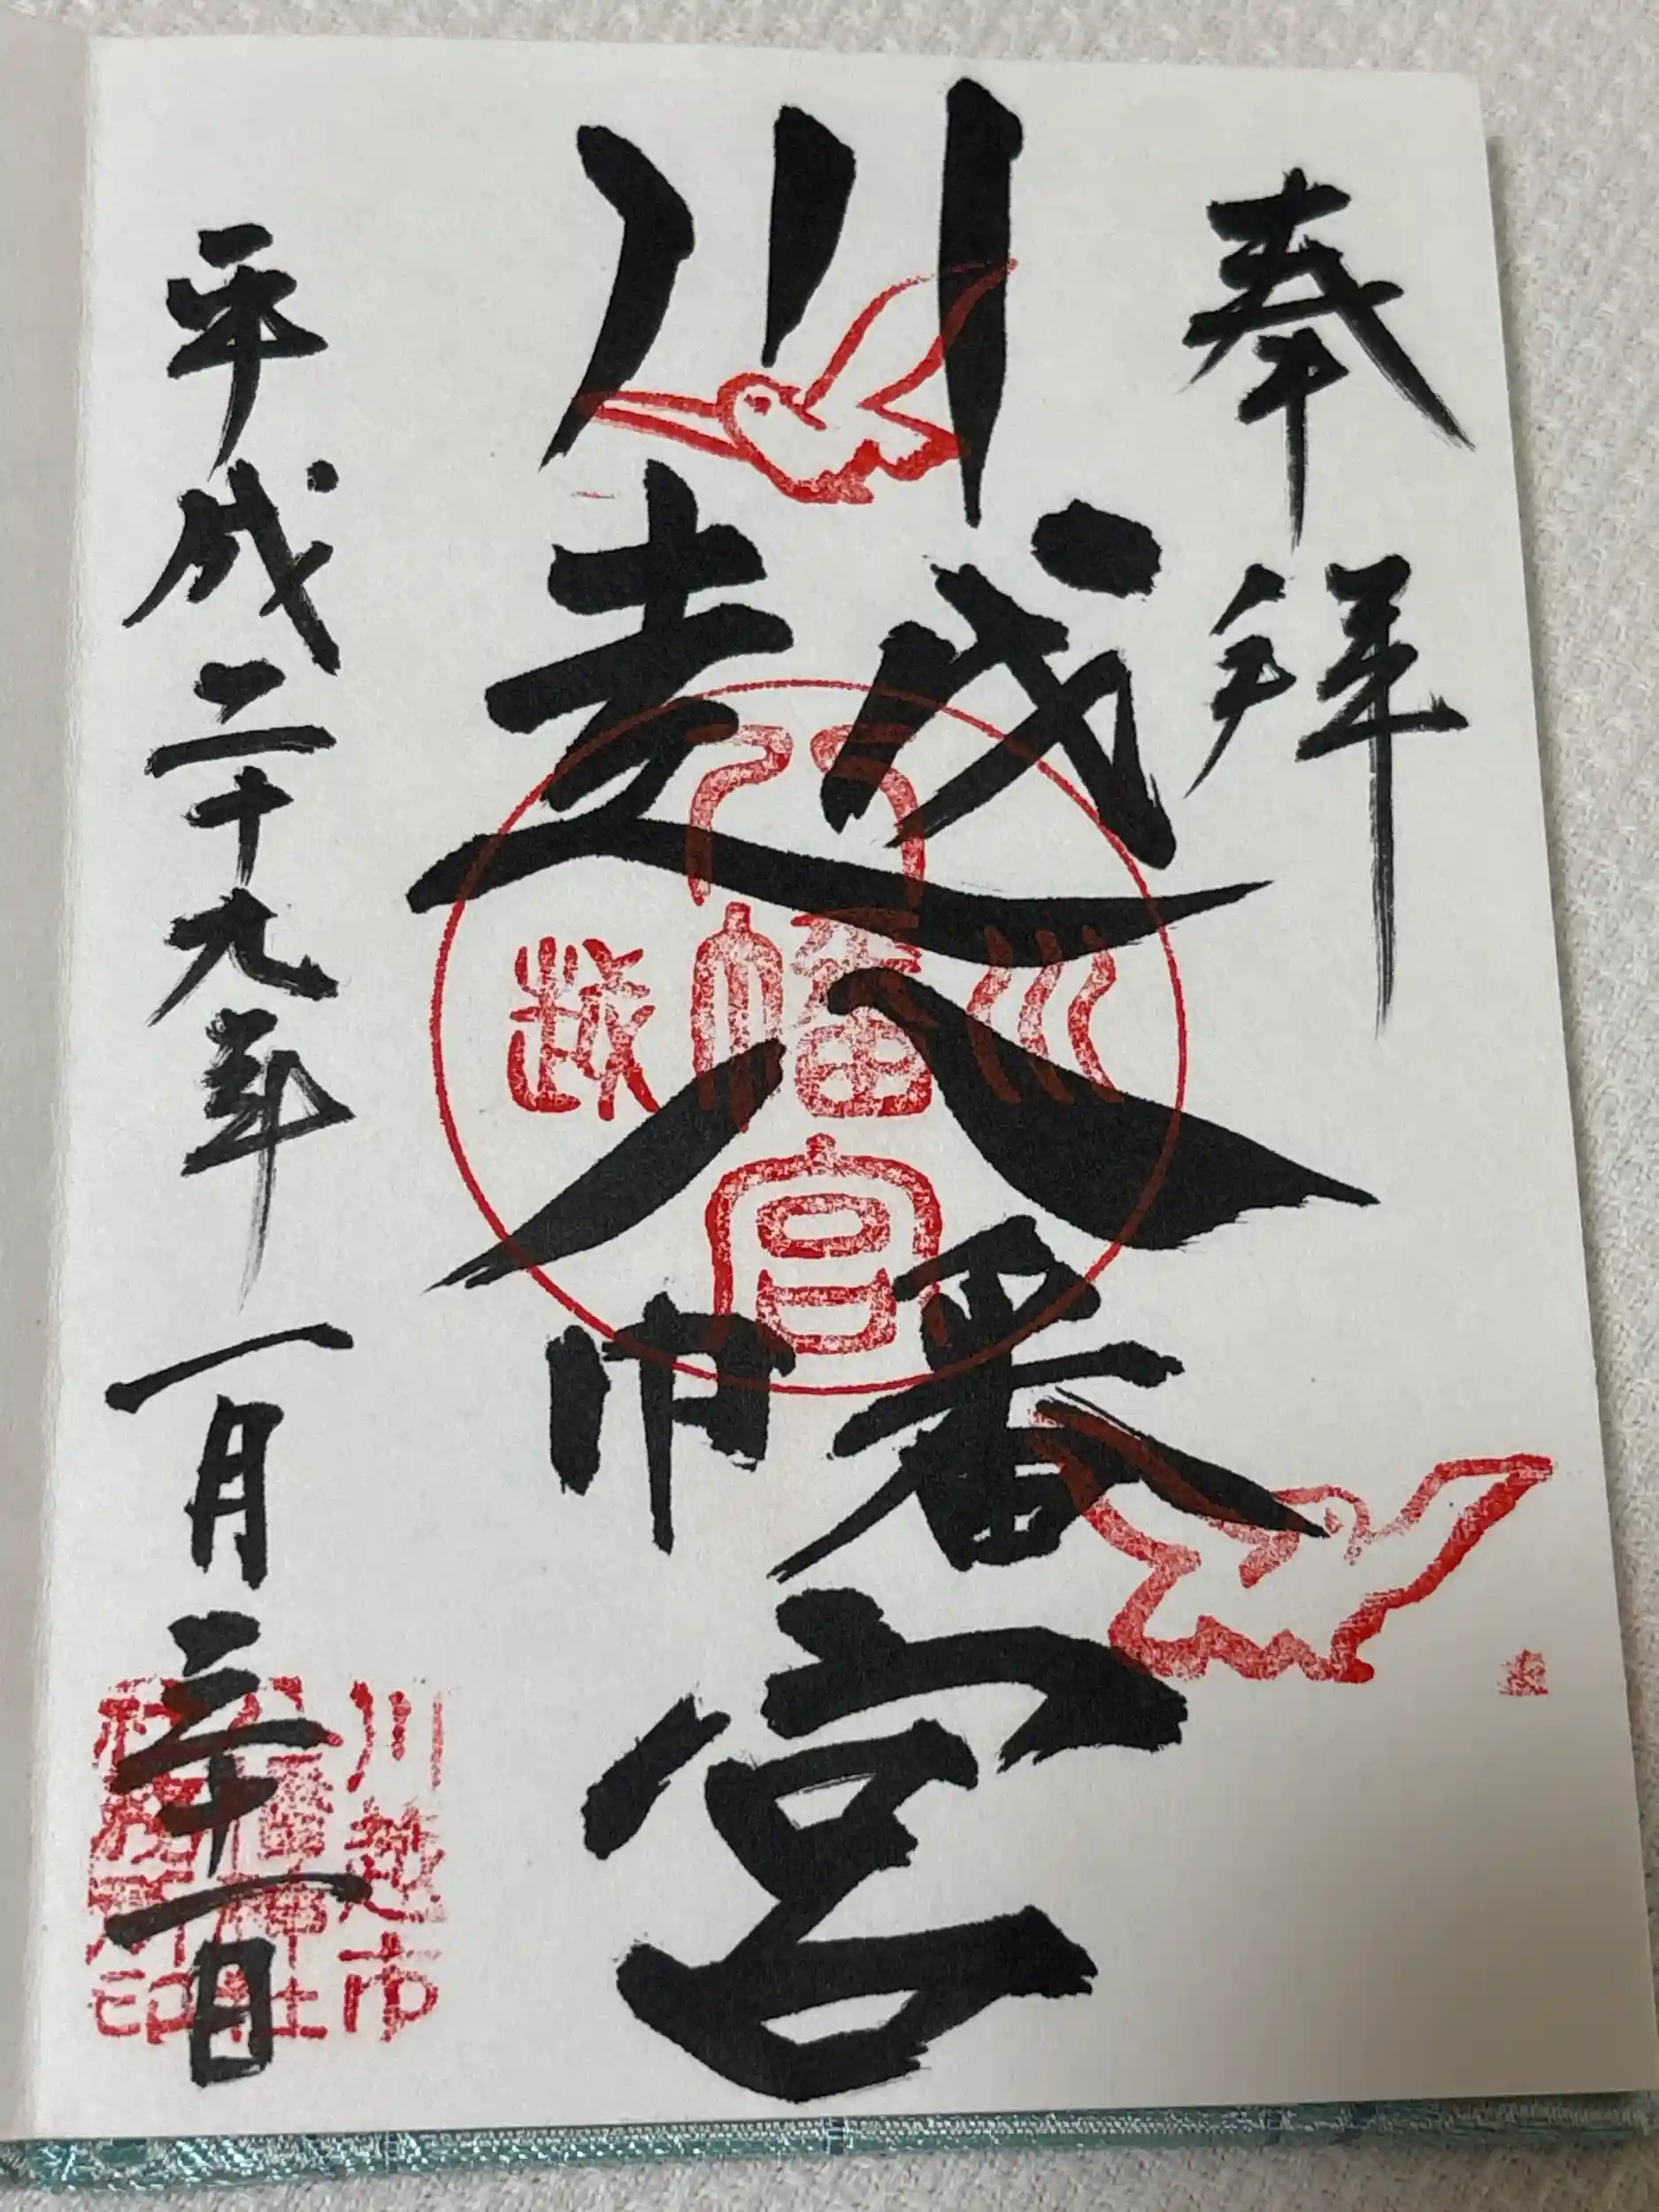 奉拝
川越八幡宮
川越
八幡宮
平成二十九年一月三十一日
川越市